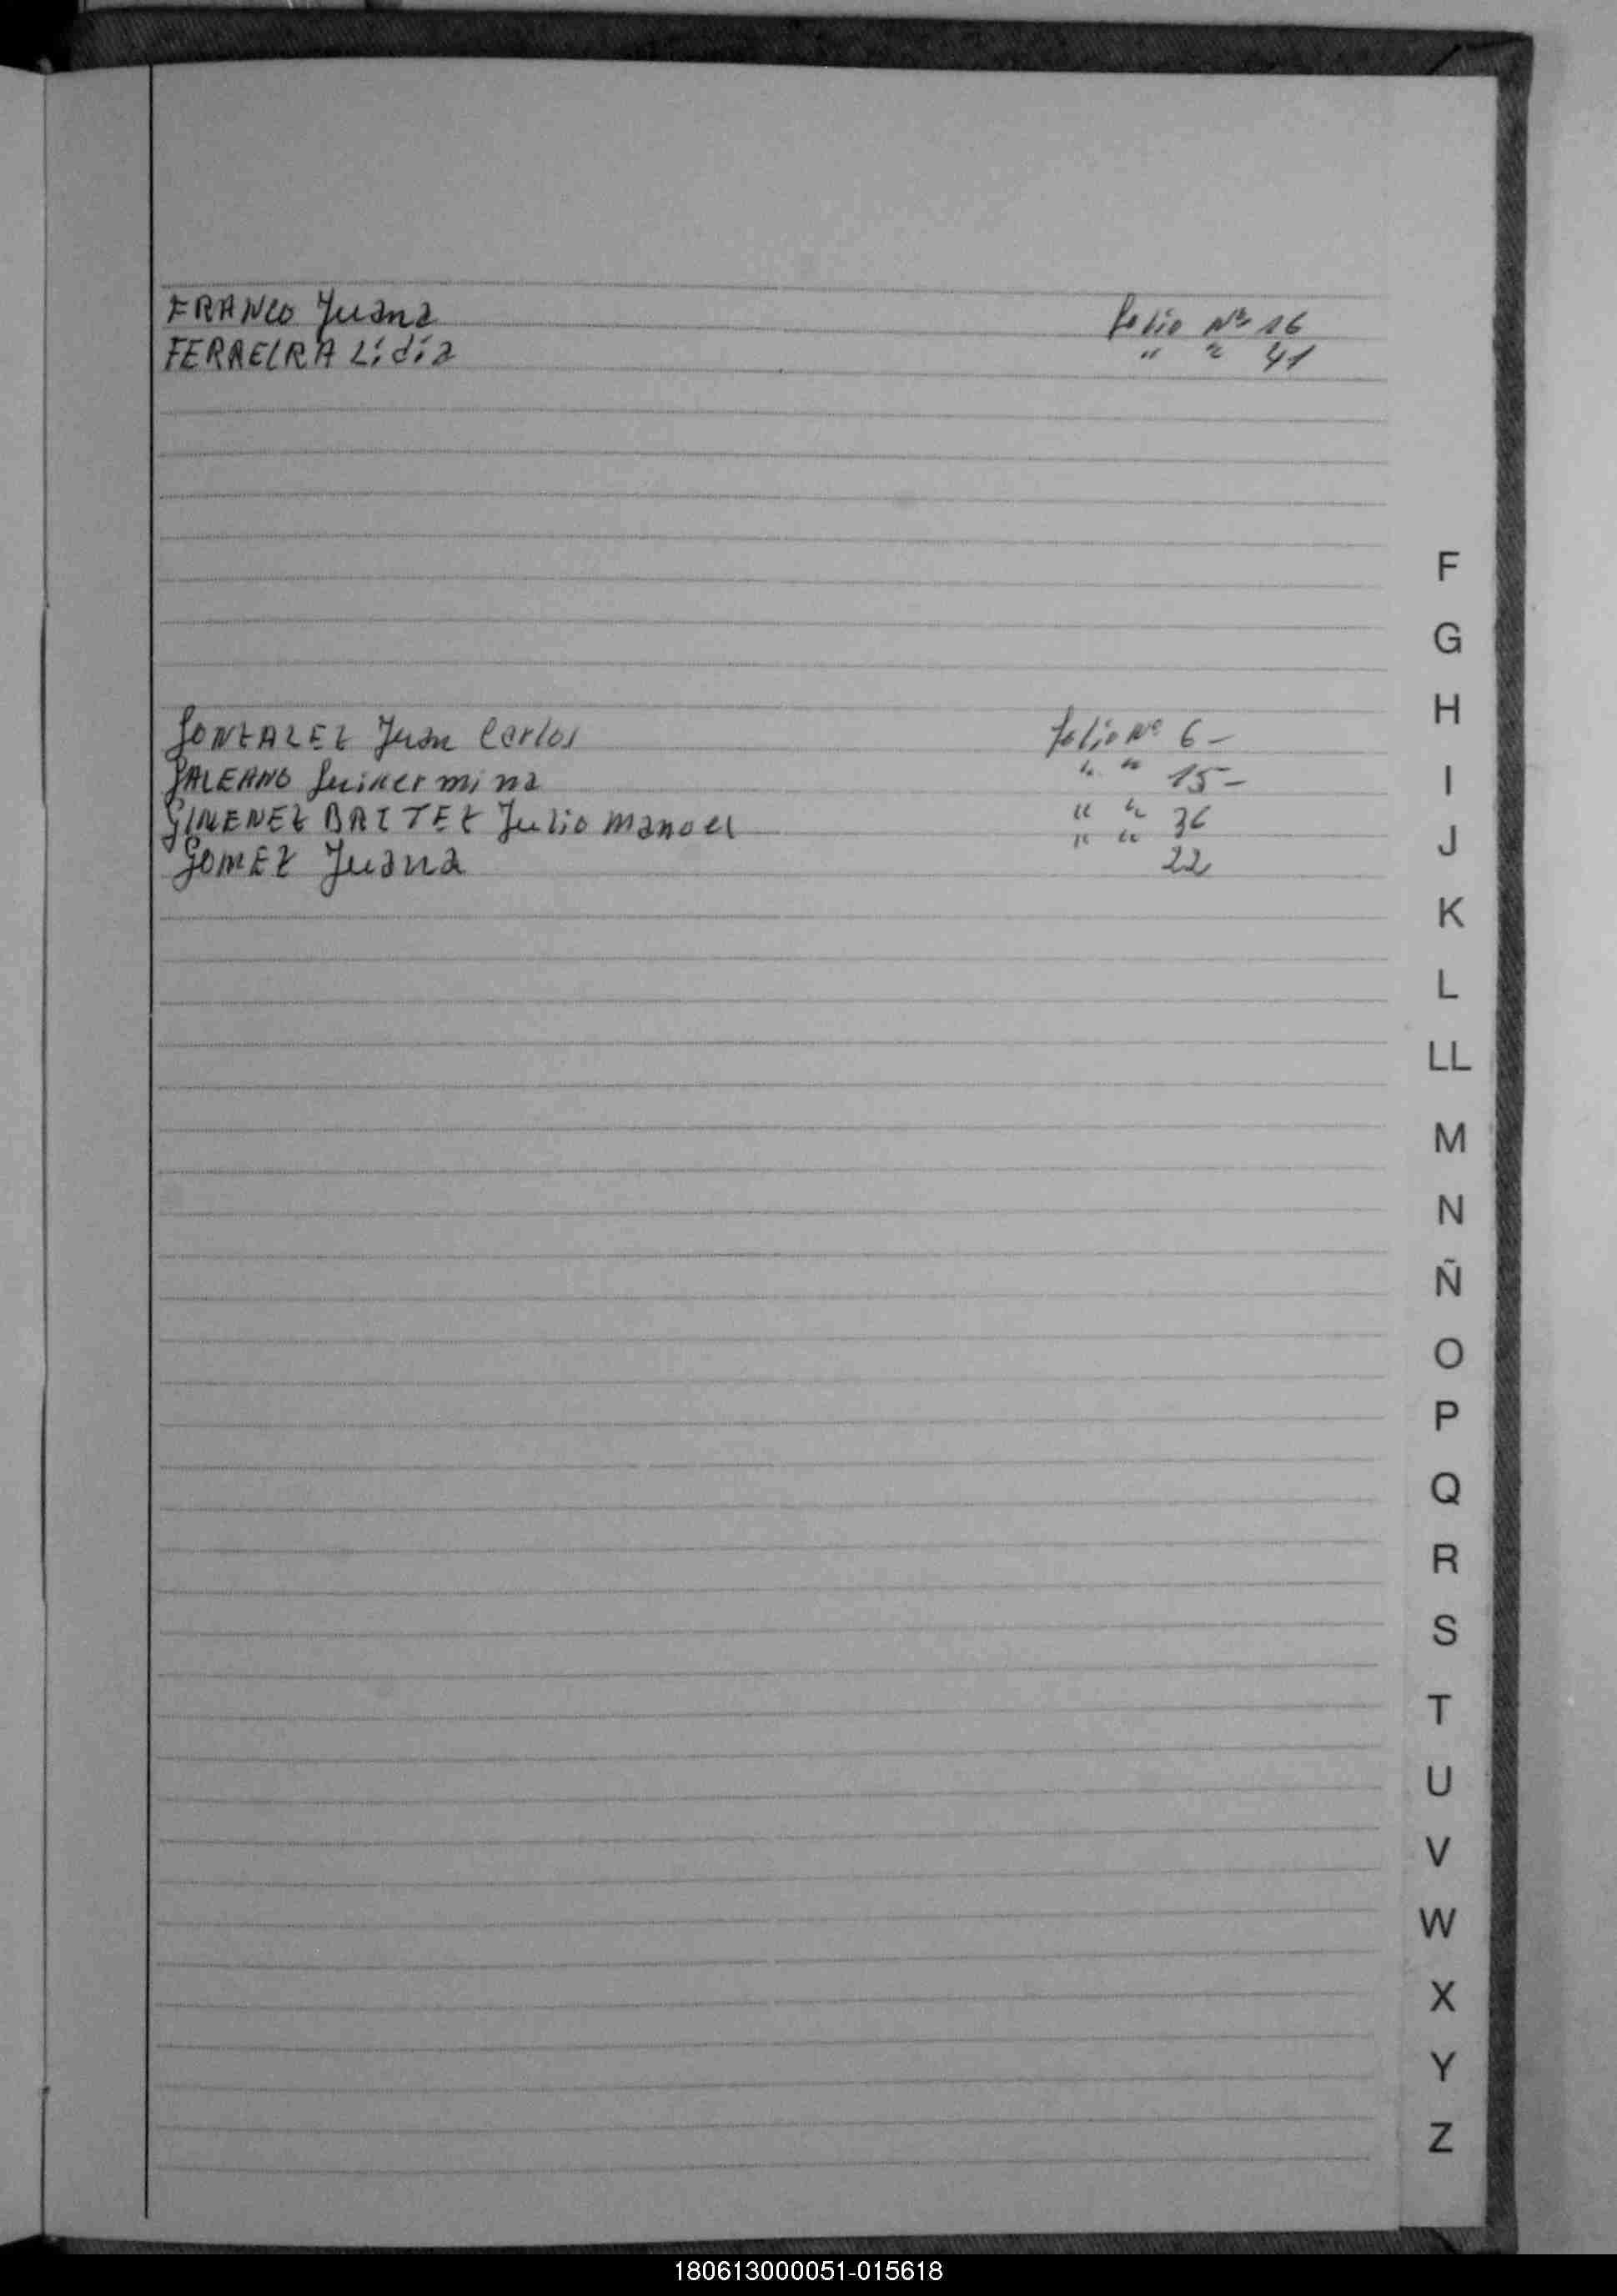 FRANCO Juana folio Nº 16
FERREIRA Lidia " " 41
GONZALEZ Juan Carlos folio Nº 6-
GALEANO Guillermina " " 15-
GIMENEZ BRITEZ Julio Manuel " " 36
GOMEZ Juana " " 22
F
G
H
I
J
K
L
LL
M
N
Ñ
O
P
Q
R
S
T
U
V
W
X
Y
Z
180613000051-015618